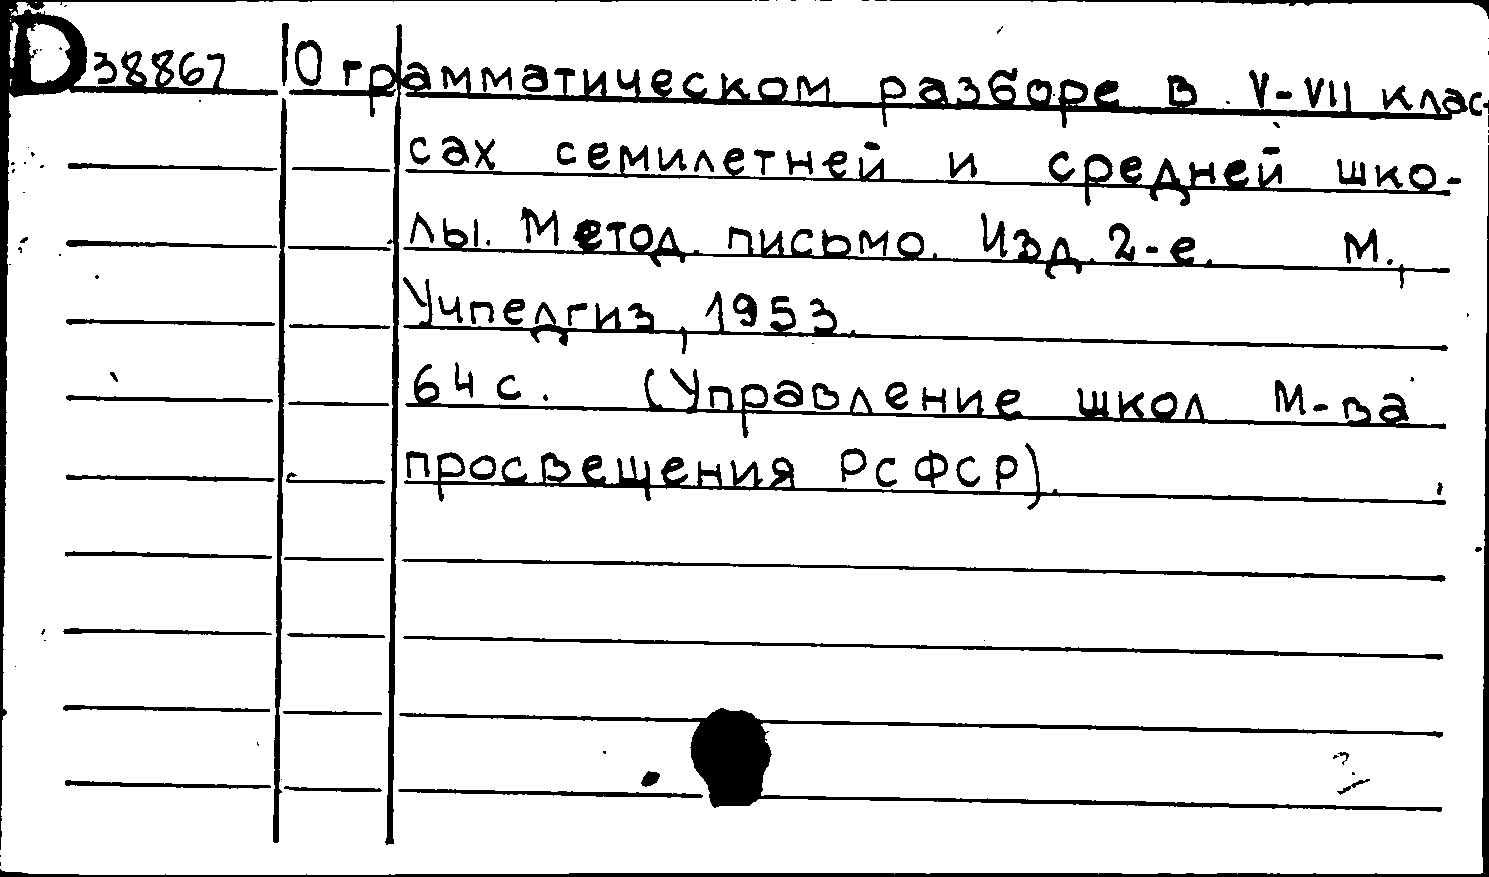 D38867 О грамматическом разборе в V-VII клас-
сах семилетней и средней шко-
лы. Метод. письмо. Изд. 2-е. М.,
Учпедгиз, 1953.
64 с. (Управление школ М-ва
просвещения РСФСР).